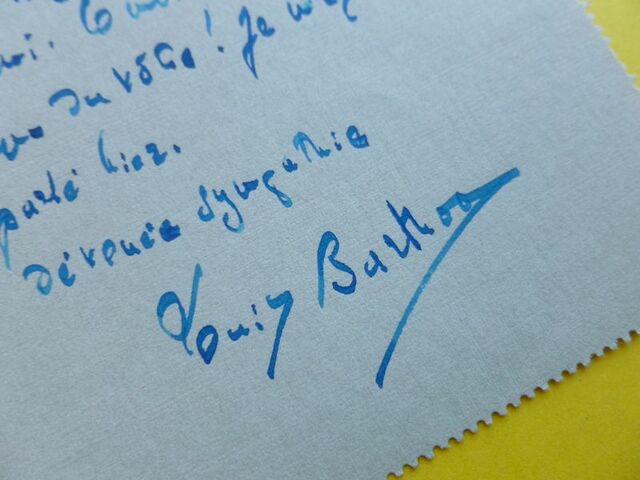 du vôtre! Je
parlé hier.
dévouée sympathie
Louis Barthou